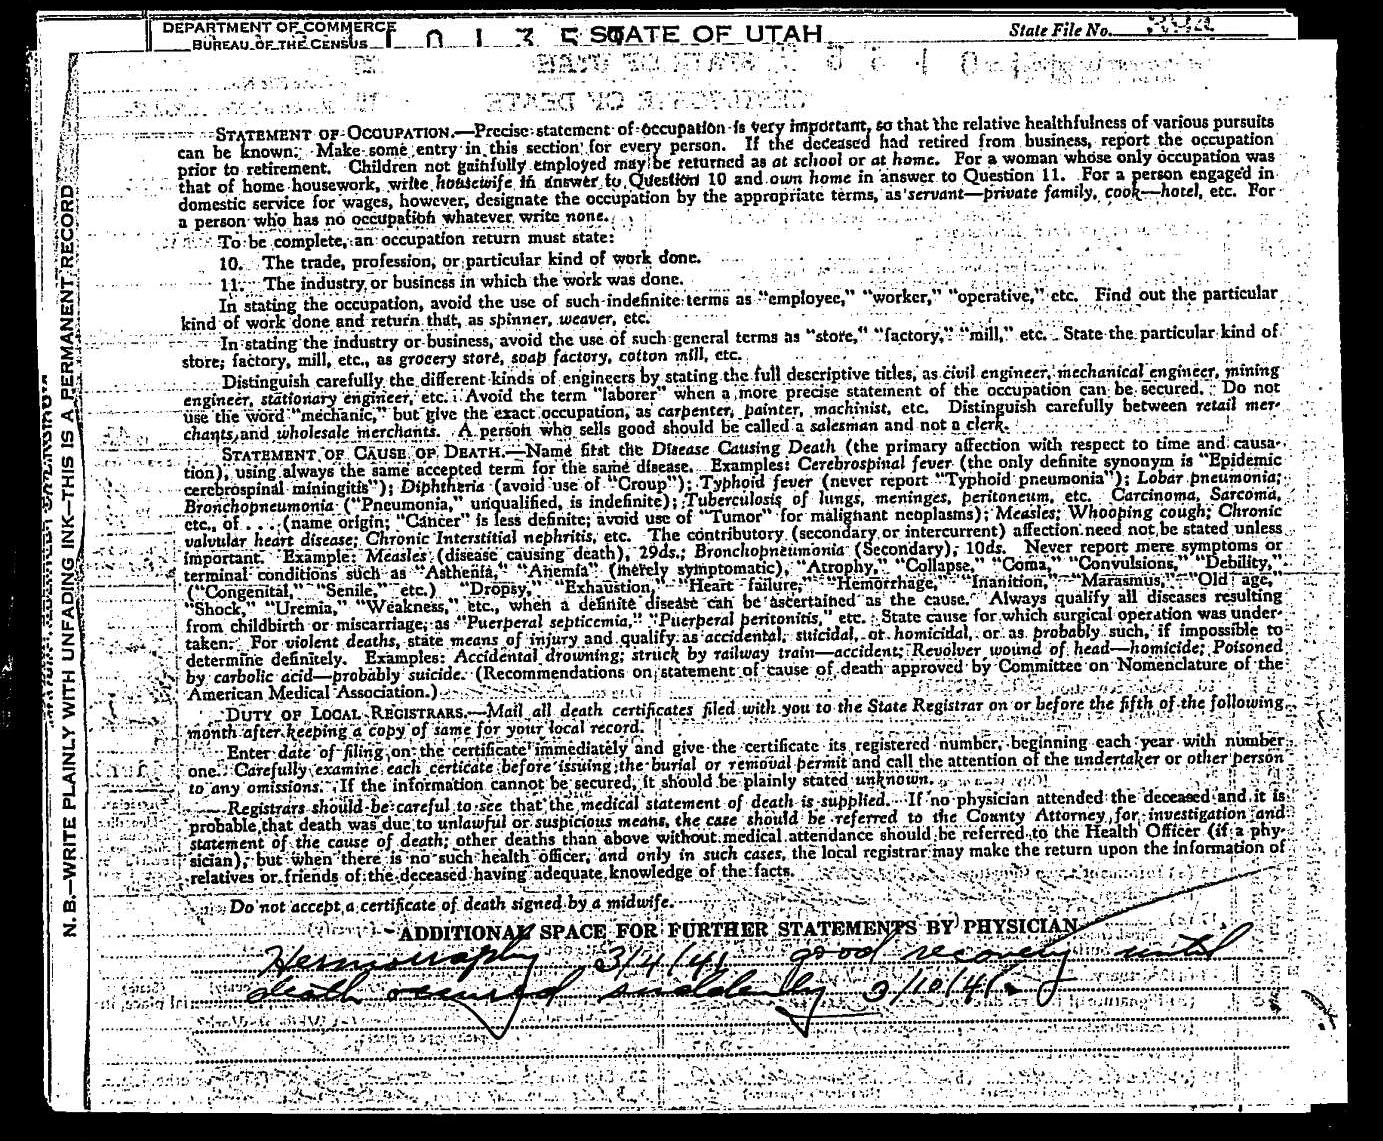 DEPARTMENT OF COMMERCE
BUREAU OF THE CENSUS
STATE OF UTAH
State File No.
N. B.—WRITE PLAINLY WITH UNFADING INK—THIS IS A PERMANENT RECORD
STATEMENT OF OCCUPATION.—Precise statement of occupation is very important, so that the relative healthfulness of various pursuits
can be known. Make some entry in this section for every person. If the deceased had retired from business, report the occupation
prior to retirement. Children not gainfully employed may be returned as at school or at home. For a woman whose only occupation was
that of home housework, write housewife in answer to Question 10 and own home in answer to Question 11. For a person engaged in
domestic service for wages, however, designate the occupation by the appropriate terms, as servant—private family, cook—hotel, etc. For
a person who has no occupation whatever write none.
To be complete, an occupation return must state:
10. The trade, profession, or particular kind of work done.
11. The industry or business in which the work was done.
In stating the occupation, avoid the use of such indefinite terms as "employee," "worker," "operative," etc. Find out the particular
kind of work done and return that, as spinner, weaver, etc.
In stating the industry or business, avoid the use of such general terms as "store," "factory," "mill," etc. State the particular kind of
store, factory, mill, etc., as grocery store, soap factory, cotton mill, etc.
Distinguish carefully the different kinds of engineers by stating the full descriptive titles, as civil engineer, mechanical engineer, mining
engineer, stationary engineer, etc. Avoid the term "laborer" when a more precise statement of the occupation can be secured. Do not
use the word "mechanic," but give the exact occupation, as carpenter, painter, machinist, etc. Distinguish carefully between retail mer-
chants and wholesale merchants. A person who sells good should be called a salesman and not a clerk.
STATEMENT OF CAUSE OF DEATH.—Name first the Disease Causing Death (the primary affection with respect to time and causa-
tion), using always the same accepted term for the same disease. Examples: Cerebrospinal fever (the only definite synonym is "Epidemic
cerebrospinal miningitis"); Diphtheria (avoid use of "Croup"); Typhoid fever (never report "Typhoid pneumonia"); Lobar pneumonia;
Bronchopneumonia ("Pneumonia," unqualified, is indefinite); Tuberculosis of lungs, meninges, peritoneum, etc. Carcinoma, Sarcoma,
etc., of . . . (name origin; "Cancer" is less definite; avoid use of "Tumor" for malignant neoplasms); Measles; Whooping cough; Chronic
valvular heart disease; Chronic Interstitial nephritis, etc. The contributory (secondary or intercurrent) affection need not be stated unless
important. Example: Measles (disease causing death), 29ds.; Bronchopneumonia (Secondary), 10ds. Never report mere symptoms or
terminal conditions such as "Asthenia," "Anemia" (merely symptomatic), "Atrophy," "Collapse," "Coma," "Convulsions," "Debility,"
("Congenital," "Senile," etc.) "Dropsy," "Exhaustion," "Heart failure," "Hemorrhage," "Inanition," "Marasmus," "Old age,"
"Shock," "Uremia," "Weakness," etc., when a definite disease can be ascertained as the cause. Always qualify all diseases resulting
from childbirth or miscarriage, as "Puerperal septicemia," "Puerperal peritonitis," etc. State cause for which surgical operation was under-
taken. For violent deaths, state means of injury and qualify as accidental, suicidal, or homicidal, or as probably such, if impossible to
determine definitely. Examples: Accidental drowning; struck by railway train—accident; Revolver wound of head—homicide; Poisoned
by carbolic acid—probably suicide. (Recommendations on statement of cause of death approved by Committee on Nomenclature of the
American Medical Association.)
DUTY OF LOCAL REGISTRARS.—Mail all death certificates filed with you to the State Registrar on or before the fifth of the following
month after keeping a copy of same for your local record.
Enter date of filing on the certificate immediately and give the certificate its registered number, beginning each year with number
one. Carefully examine each certicate before issuing the burial or removal permit and call the attention of the undertaker or other person
to any omissions. If the information cannot be secured, it should be plainly stated unknown.
Registrars should be careful to see that the medical statement of death is supplied. If no physician attended the deceased and it is
probable that death was due to unlawful or suspicious means, the case should be referred to the County Attorney for investigation and
statement of the cause of death; other deaths than above without medical attendance should be referred to the Health Officer (if a phy-
sician), but when there is no such health officer, and only in such cases, the local registrar may make the return upon the information of
relatives or friends of the deceased having adequate knowledge of the facts.
Do not accept a certificate of death signed by a midwife.
ADDITIONAL SPACE FOR FURTHER STATEMENTS BY PHYSICIAN
3/4/41 good recovery until
death occured suddenly 3/10/41